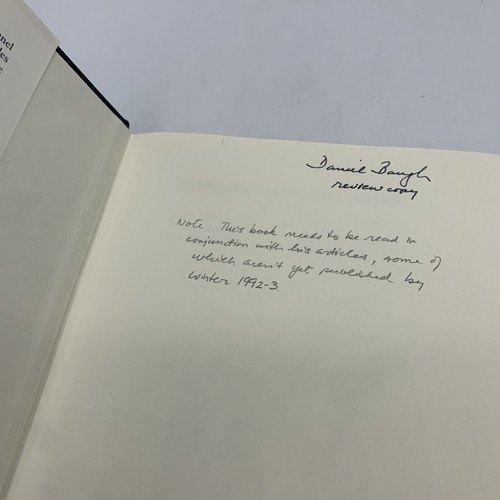 nel
les
Daniel Baugh
review copy
Note: This book needs to be read in
conjunction with his articles, some of
which aren't yet published by
winter 1992-3.